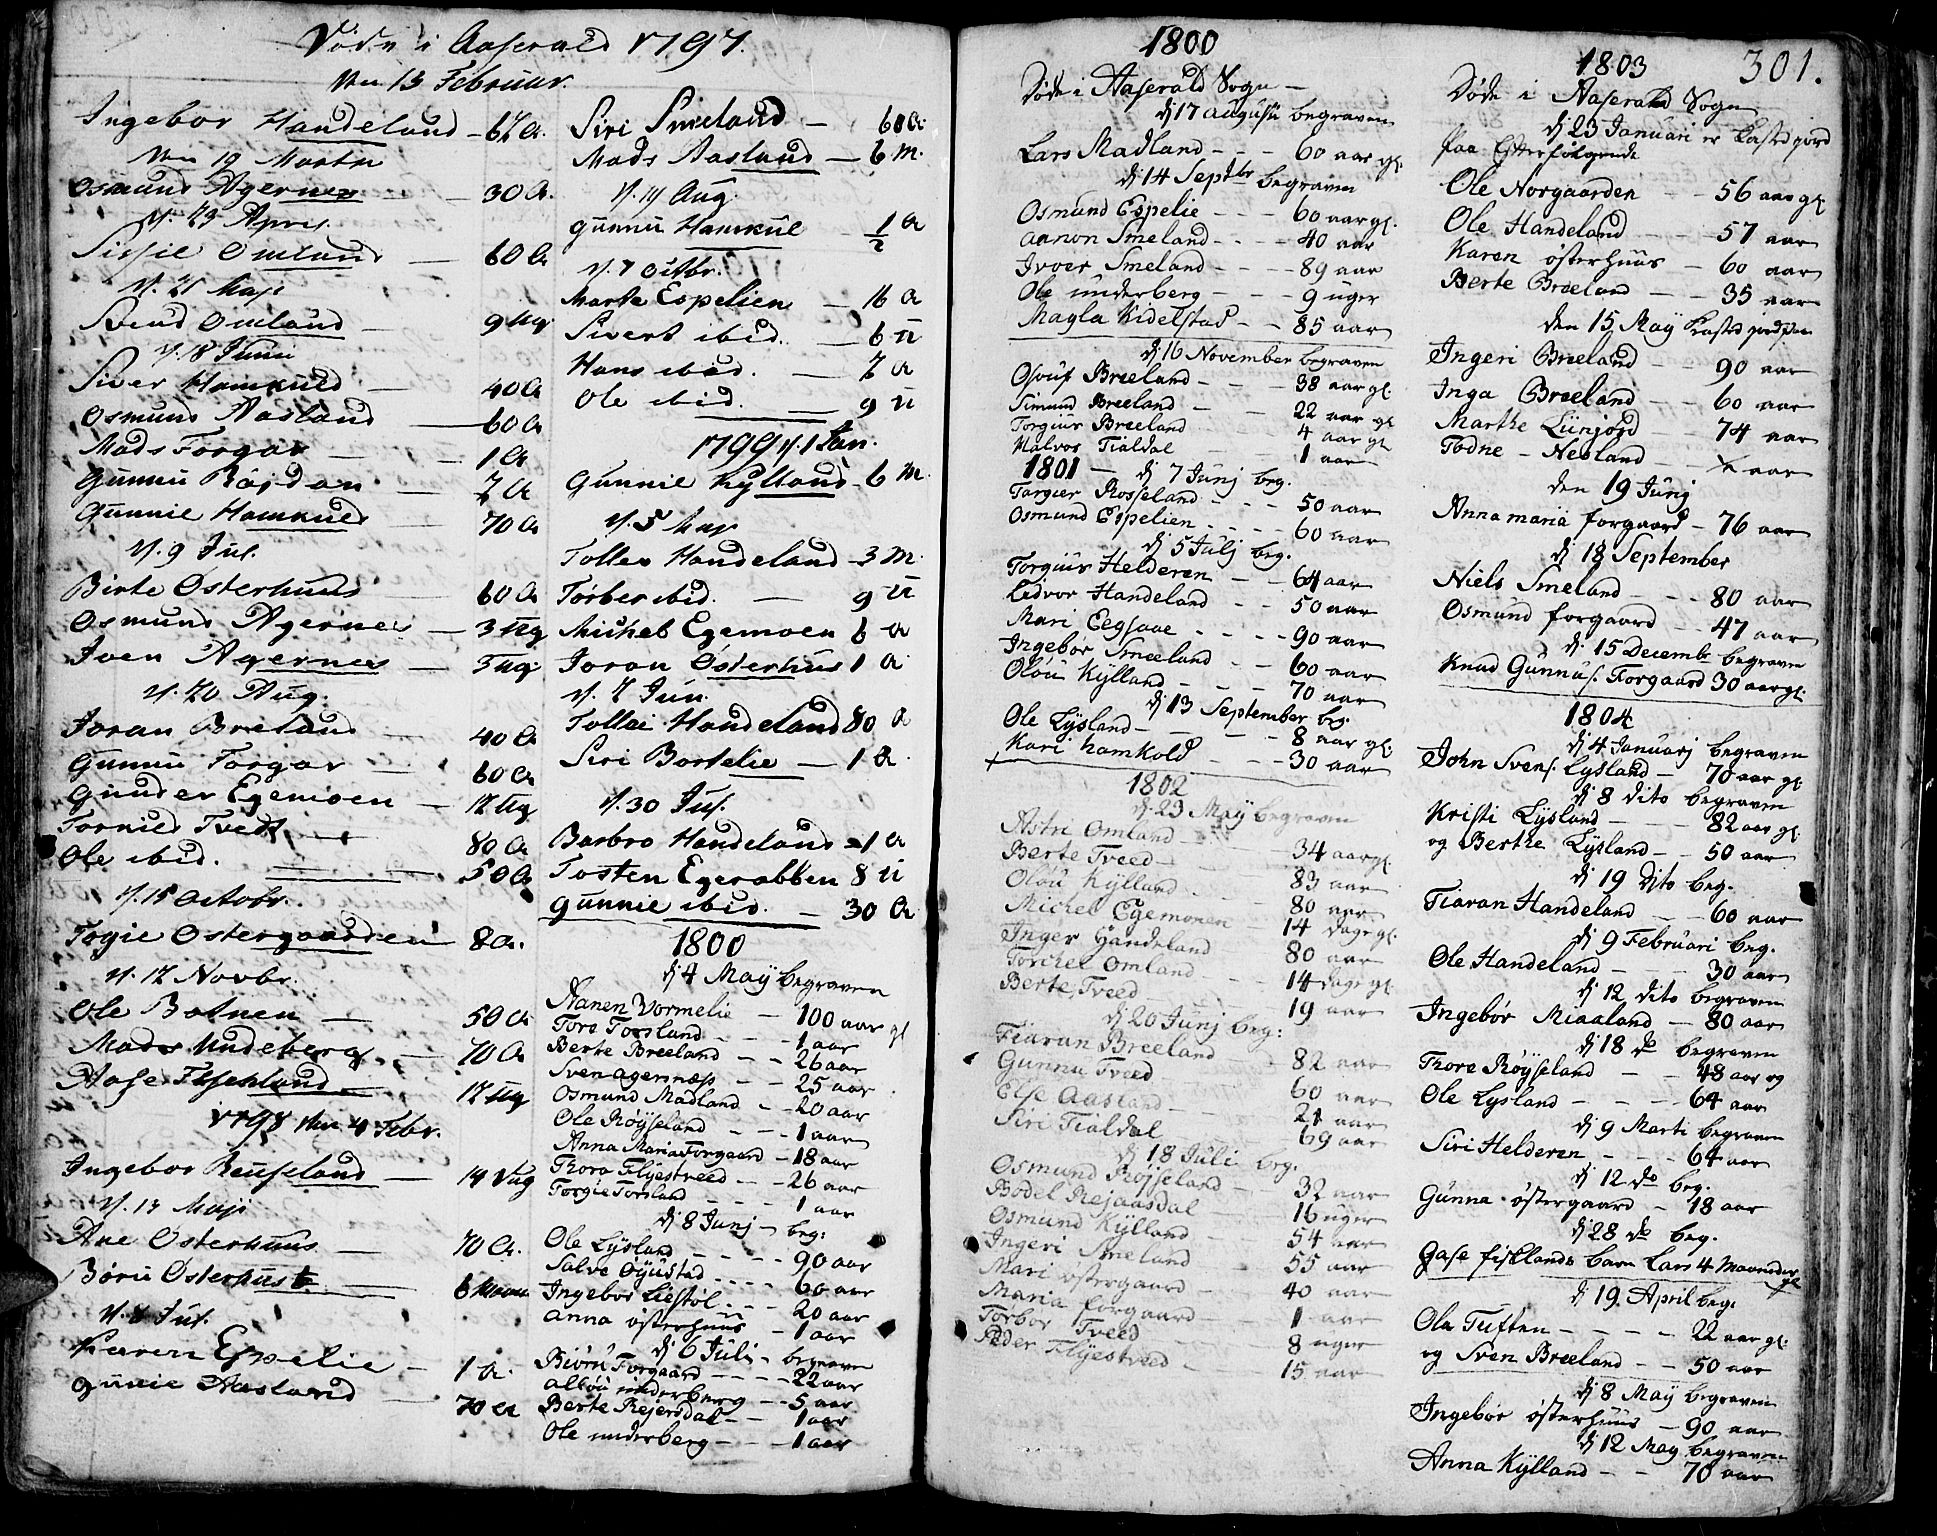 Døde i Aaserald 1797.
den 13 Februar.
Ingebor Handeland - 67 A.
den 19 Martii
Osmund Agernes - 30 A.
d. 23 April
Sissie Omland - 60 A
d. 21 Maji
Svend Omland - 9 Ug
d. 18 Junii
Siver Hamkuld - 40 A
Osmund Aasland - 60 A
Mads Forgar - 1 A
Gunnu Røjsdan - 7 A
Gunnie Hamkuld - 70 A
d. 9 Jul.
Birte Osterhuus - 60 A
Osmund Agernes - 3 Ug
Iven Agernes - 3 Ug.
d. 20 Aug.
Joran Breland - 40 A
Gunnu Forgar - 60 A
Gunder Egemoen - 12 Ug
Tornild Tvedt - 80 A
Ole ibid. - 50 A
d. 15 Octobr.
Togie Ostergaarden 8 A.
d. 12 Novbr.
Ole Botnen - 50 A
Mads Undeberg - 70 A
Aase Fischland - 12 Ug
1798 den 4 Febr.
Ingebor Reuseland - 14 Vug
d. 13 Maji
Ane Osterhuus - 70 A.
Børu Osterhus - 6
d. 8 Jul.
Karen Espelie - 1 A.
Gunie Aasland - 70 A
Siri Smeland - 60 A.
Mads Aasland - 6 M.
d. 19 Aug.
Gunnu Hamkul - 1/2 A
d. 7 Octbr.
Marte Espelien - 16 A
Sivert ibid. - 6 U
Hans ibid. - 7 A
Ole ibid. - 9 U
1799 d. 1 Jan.
Gunnie Kylland - 6 M.
d. 5 Maj
Tolles Handeland - 3 M.
Torber ibid. - 9 U
Michel Egemoen 6 A
Joran Osterhus 1 A
d. 2 Jun.
Tollei Handeland 80 A
Siri Bortelie - 1 A.
d. 30 Jul.
Barbro Handeland - 1 A
Tosten Egerabben 8 U
Gunnie ibid. - 30 A.
1800
dj 4 Maÿ begraven
Aanen Vormelie - 100 aar gl
Tore Torsland - - 1 aar
Berte Breeland - - 26 aar
Sven Agernæs - - 25 aar
Osmund Madland - 20 aar
Ole Røÿseland - - 1 aar
Anna Maria Forgaard - 18 aar
Thora Flÿestveed - - 26 aar
Torgie Torsland - - 1 aar
dj 8 Junj - beg:
Ole Lÿsland - - - 90 aar
Salve Øÿustad - - - 60 aar
Ingebor Liestøl - - 20 aar
Anna østerhuus - 1 aar
dj 6 Juli - begraven
Biørn Forgaard - - - 22 aar
Alkou underberg - - 5 aar
Berte Rejersdal - - 1 aar
Ole underberg - - - 1 aar
1800
Døde i Aaserald Sogn -
dj 17 Augusti begraven
Lars Madland - - - 60 aar gl.
dj 14 Septbr begraven
Osmund Espelie - - - 60 aar gl.
Aanon Smeland - - - 40 aar
Iver Smeland - - - 89 aar
Ole underberg - - - 9 uger
Magla Kidelstad - - 85 aar
dj 16 November begraven
Osouf Breeland - - - 38 aar gl.
Timund Breeland - - 22 aar gl.
Torgiur Breeland - - 4 aar gl
Halvor Tialdal - - 1 aar
1801 - dj 7 Junj beg.
Targier Rosseland - - - 50 aar
Osmund Espelien - - - 60 aar
dj 5 Julj beg.
Torgiur Helderen - - 64 aar
Lidvor Handeland - - 50 aar
Mari Eegsaae - - - 90 aar
Ingebør Smeeland - - 60 aar
Oløu Kÿlland - - - 70 aar
dj 13 September beg.
Ole Lÿsland - - - 8 aar gl.
Kari Hamkold - - - 30 aar
1802
dj. 23 Maÿ begraven
Astri Omland - - - 34 aar gl.
Berte Tveed - - - 83 aar
Oløu Kÿlland - - - 80 aar
Michel Egemonen - 14 dage gl.
Inger Handeland - 80 aar
Torchel Omland - 14 dage gl
Berte Tveed - 19 aar
dj 20 Junj beg:
Tiaran Breeland - 82 aar
Gunnu Tveed - 60 aar
Else Aasland - 21 aar
Siri Tialdal - 69 aar
dj 18 Juli beg.
Osmund Røjseland - 32 aar
Bodel Rejaasdal - 16 uger
Osmund Kÿlland - 54 aar
Ingeri Smeland - 55 aar
Mari østergaard - 40 aar
Maria forgaard - 1 aar
Torbor Tveed - 8 uger
Peder Flÿestveed - 15 aar
1803 301.
Døde i Aaserald Sogn
dj 23 Januari er Kasted jord
paa Efterfølgende
Ole Norgaarden - - 56 aar gl.
Ole Handeland - - 57 aar
Karen østerhuus - 60 aar
Berte Breeland - - 35 aar
den 15 Maÿ Kasted jord paa
Ingeri Breeland - 90 aar
Inga Breeland - 60 aar
Marthe Liinjord - 74 aar
Todne - Neoland - aar
den 19 Junj
Anna maria forgaard - 76 aar
dj 18 September
Niels Smeland - - 80 aar
Osmund forgaard - - 47 aar
dj. 15 Decembr begraven
Knud Gunnus. Forgaard 30 aar gl.
1804
dj 4 Januarj begraven
John Svens. Lÿsland - 70 aar gl
dj 8 dito begraven
Kristi Lÿsland - - 82 aar gl.
og Berthe Lÿsland - - 50 aar
dj 19 dito beg.
Tiaran Handeland - - 60 aar
dj 9 Februari beg.
Ole Handeland - - 30 aar
dj 12 dito begraven
Ingebør Miaaland - 80 aar
dj 18 do begraven
Thore Røÿseland - - 48 aar og
Ole Lÿsland - - - 64 aar
dj 9 Marti begraven
Siri Helderen - - - 64 aar
dj 12 do beg.
Gunna østergaard - 18 aar
dj 28 do beg.
Gase fisklands barn Lars 4 Maaneder gl
dj 19. April beg:
Ola Tuften - - - - 22 aar gl.
og Sven Breeland - - 50 aar
dj 8 Maÿ begraven
Ingebør østerhuus - 90 aar
dj 12 Maÿ begraven
Anna Kÿlland - - 70 aar